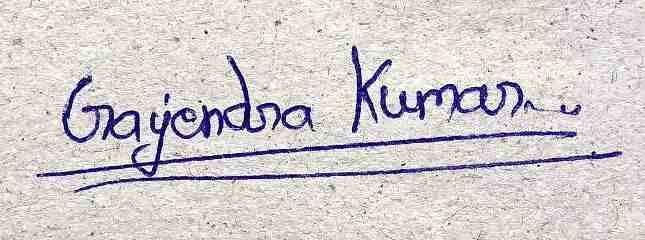 Gajendra Kumar